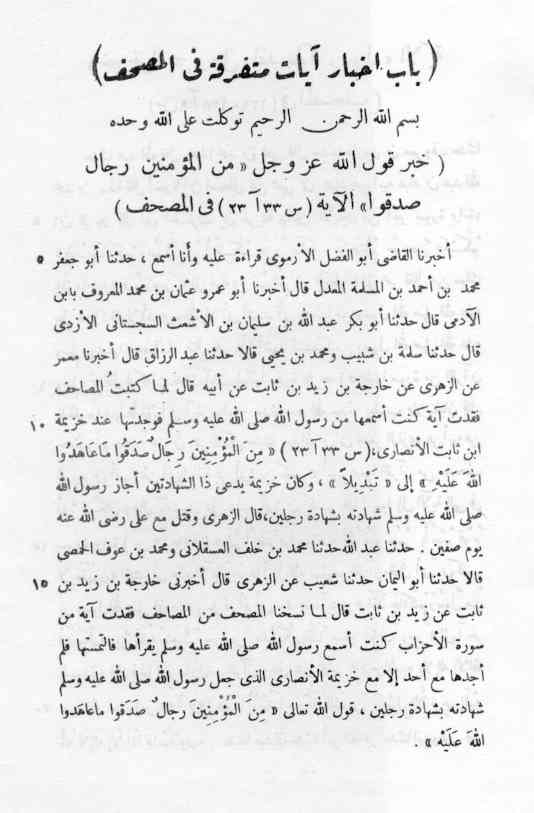 (باب اخبار آيات متفرقة فى المصحف)
بسم الله الرحمن الرحيم توكلت على الله وحده
( خبر قول الله عز وجل « من المؤمنين رجال
صدقوا » الآية (س ٣٣ آ ٢٣) فى المصحف )
أخبرنا القاضى أبو الفضل الأرموى قراءة عليه وأنا أسمع ، حدثنا أبو جعفر ٥
محمد بن أحمد بن المسلمة المعدل قال أخبرنا أبو عمرو عثمان بن محمد المعروف بابن
الآدمى قال حدثنا أبو بكر عبد الله بن سليمان بن الأشعث السجستانى الأزدى
قال حدثنا سلمة بن شبيب ومحمد بن يحيى قالا حدثنا عبد الرزاق قال أخبرنا معمر
عن الزهرى عن خارجة بن زيد بن ثابت عن أبيه قال لما كتبتُ المصاحف
فقدت آية كنت أسمعها من رسول الله صلى الله عليه وسلم فوجدتها عند خزيمة ١٠
ابن ثابت الأنصارى، (س ٣٣ آ ٢٣) « مِنَ الْمُؤْمِنِينَ رِجَالٌ صَدَقُوا مَا عَاهَدُوا
اللهَ عَلَيْهِ » إلى « تَبْدِيلاً » ، وكان خزيمة يدعى ذا الشهادتين أجاز رسول الله
صلى الله عليه وسلم شهادته بشهادة رجلين، قال الزهرى وقتل مع على رضى الله عنه
يوم صفين . حدثنا عبد الله حدثنا محمد بن خلف العسقلانى ومحمد بن عوف الحمصى
قالا حدثنا أبو اليمان حدثنا شعيب عن الزهرى قال أخبرنى خارجة بن زيد بن ١٥
ثابت عن زيد بن ثابت قال لما نسخنا المصحف من المصاحف فقدت آية من
سورة الأحزاب كنت أسمع رسول الله صلى الله عليه وسلم يقرأها فالتمستها فلم
أجدها مع أحد إلا مع خزيمة الأنصارى الذى جعل رسول الله صلى الله عليه وسلم
شهادته بشهادة رجلين ، قول الله تعالى « مِنَ الْمُؤْمِنِينَ رجالٌ صَدَقوا ما عاهدوا
اللهَ عَلَيْه » .